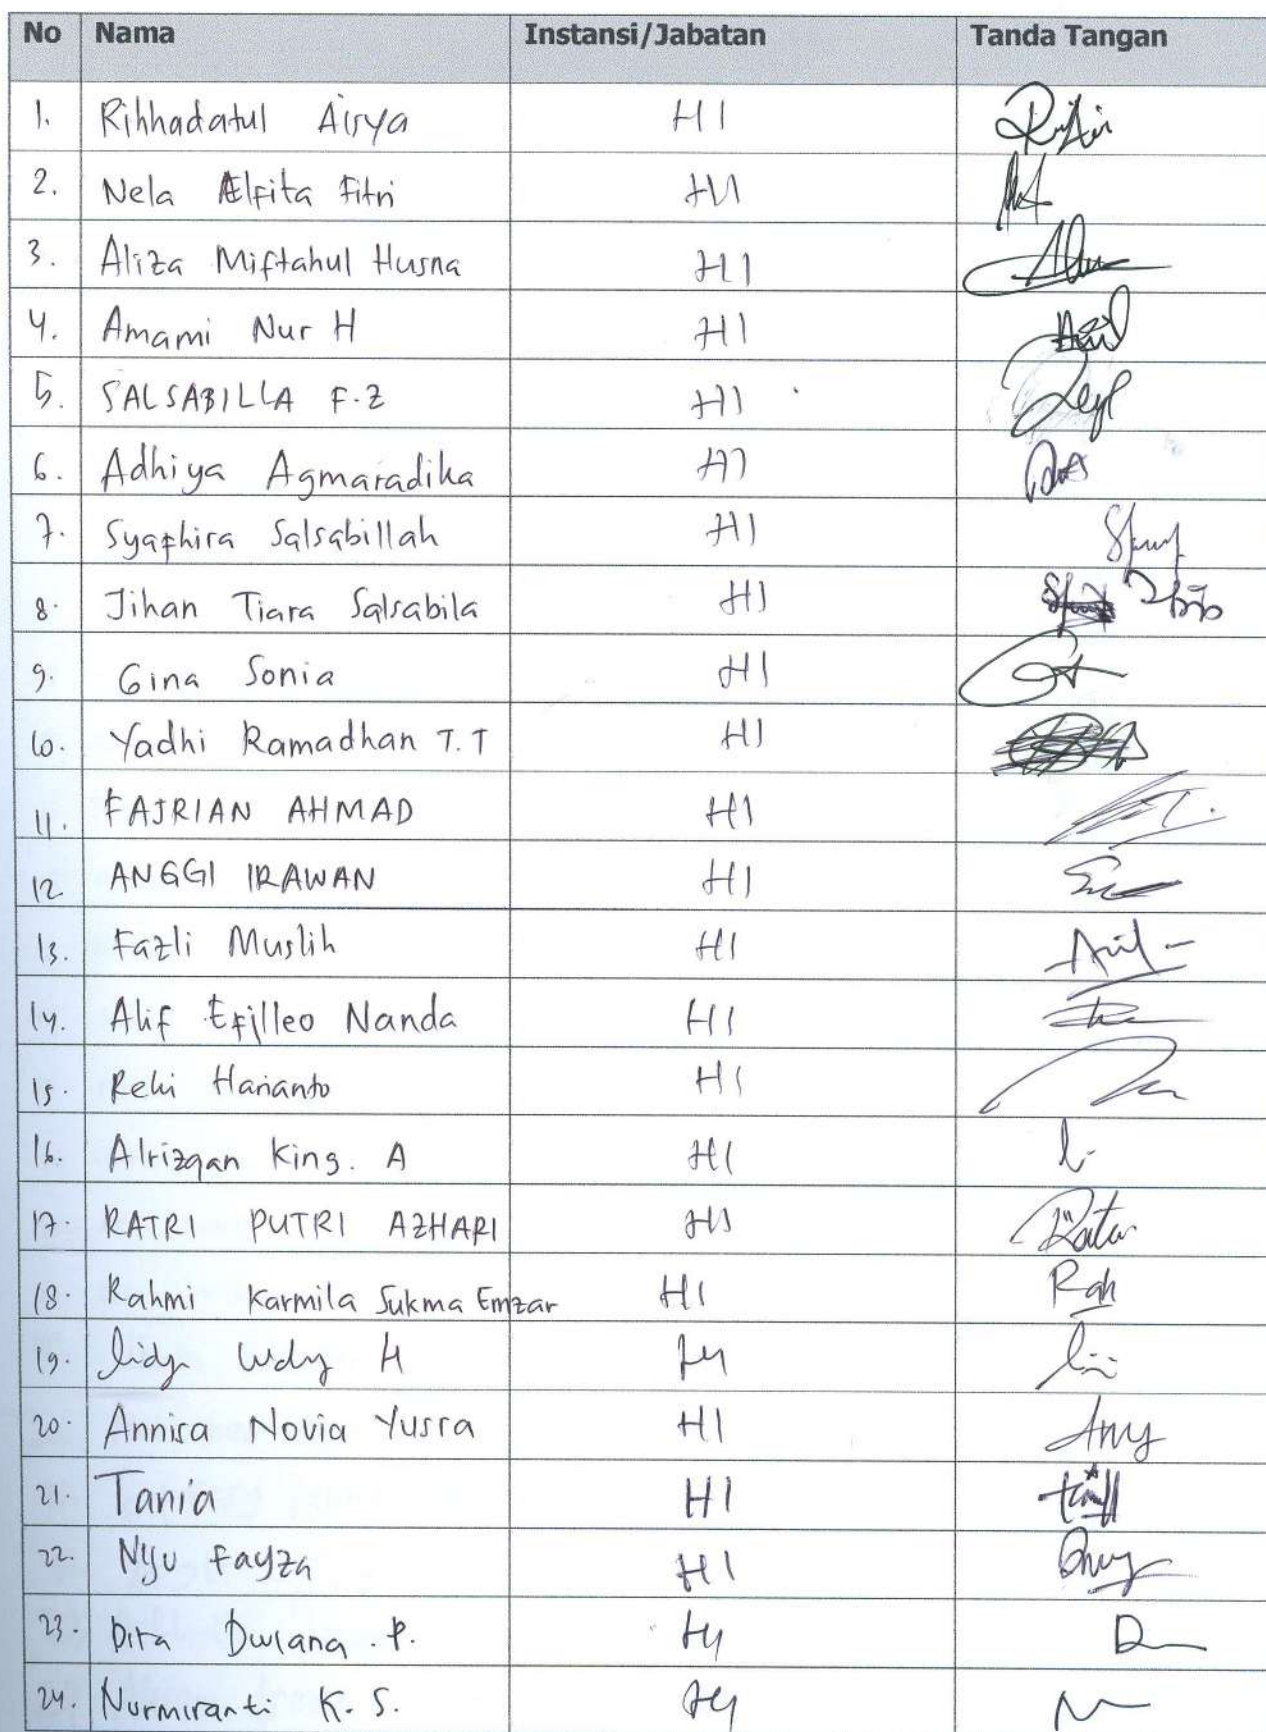 No Nama Instansi/Jabatan Tanda Tangan
1. Rihhadatul Aisya HI
2. Nela Elfita Fitri HI
3. Aliza Miftahul Husna HI
4. Amami Nur H HI
5. SALSABILLA F.Z HI
6. Adhiya Agmaradika HI
7. Syaphira Salsabillah HI
8. Jihan Tiara Salsabila HI
9. Gina Sonia HI
10. Yadhi Ramadhan T.T HI
11. FAJRIAN AHMAD HI
12. ANGGI IRAWAN HI
13. Fazli Muslih HI
14. Alif Efilleo Nanda HI
15. Reki Harianto HI
16. Alrizqan King. A HI
17. RATRI PUTRI AZHARI HI
18. Rahmi Karmila Sukma Emzar HI Rah
19. H HI
20. Annisa Novia Yusra HI
21. Tania HI
22. Nyu Fayza HI
23. Dita Dwiana .P. HI D
24. Nurmiranti K.S. HI